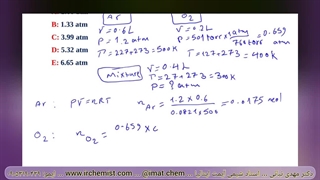 B: 1.33 atm
C: 3.99 atm
D: 5.32 atm
E: 6.65 atm
Ar
V = 0.6 L
P = 1.2 atm
T = 227+273 = 500K
O2
P = 501 torr × 1 atm / 760 torr = 0.659 atm
T = 127+273 = 400K
mixture
V = 0.4 L
T = 27+273 = 300K
P = ? atm
Ar: PV = nRT nAr = 1.2 × 0.6 / 0.0821 × 500 = 0.0175 mol
O2: nO2 = 0.659 × 0
www.irchemist.com @imat.chem